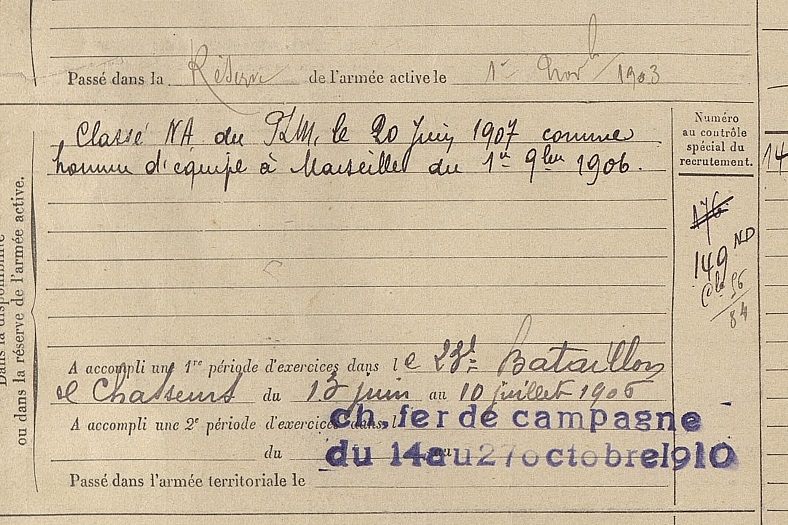 Passé dans la Réserve de l'armée active le 1er Novb 1903
Numéro
au contrôle
spécial du
recrutement.
14
Dans la disponibilité
ou dans la réserve de l'armée active.
Classé NA du PLM. le 20 Juin 1907 comme
homme d'équipe à Marseille du 1er 9bre 1906.
176
149 ND
Cle 96
84
A accompli une 1re période d'exercices dans le 23e Bataillon
de Chasseurs du 13 juin au 10 juillet 1906
A accompli une 2e période d'exercices dans l
ch. fer de campagne
du au
du 14 au 27 octobre 1910
Passé dans l'armée territoriale le